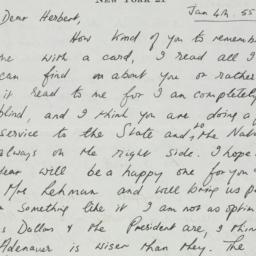 NEW YORK 21
Jan 4th. 55
Dear Herbert,
How kind of you to remember
me with a card, I read all I
can find on about you or rather
it read to me for I am completely
blind, and I think you are doing a
service to the State and to the Nat
always on the right side. I hope
year will be a happy one for you
Mrs Lehman and will bring us p
or something like it I am not as optim
s Dulles & the President are, I thin
Adenauer is wiser than they. The